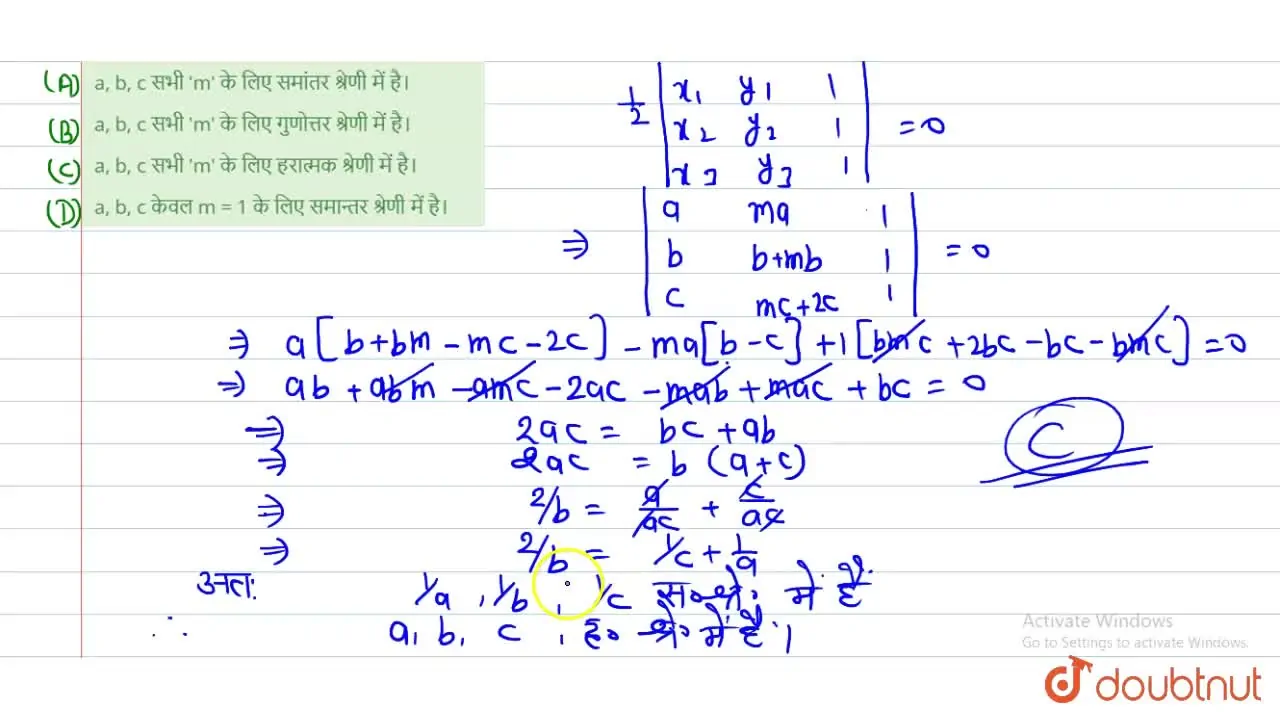 (A) a, b, c सभी 'm' के लिए समांतर श्रेणी में है।
(B) a, b, c सभी 'm' के लिए गुणोत्तर श्रेणी में है।
(C) a, b, c सभी 'm' के लिए हरात्मक श्रेणी में है।
(D) a, b, c केवल m = 1 के लिए समान्तर श्रेणी में है।
1/2 | x₁ y₁ 1 |
| x₂ y₂ 1 | = 0
| x₃ y₃ 1 |
| a ma 1 |
⇒ | b b+mb 1 | = 0
| c mc+2c 1 |
⇒ a[b+bm-mc-2c] - ma[b-c] + 1[bmc+2bc-bc-bmc] = 0
⇒ ab + abm - amc - 2ac - mab + mac + bc = 0
⇒ 2ac = bc + ab
⇒ 2ac = b (a+c)
⇒ 2/b = a/ac + c/ac
⇒ 2/b = 1/c + 1/a
अतः 1/a, 1/b, 1/c स० श्रे० में है
∴ a, b, c, ह० श्रे० में है।
C
Activate Windows
Go to Settings to activate Windows.
doubtnut